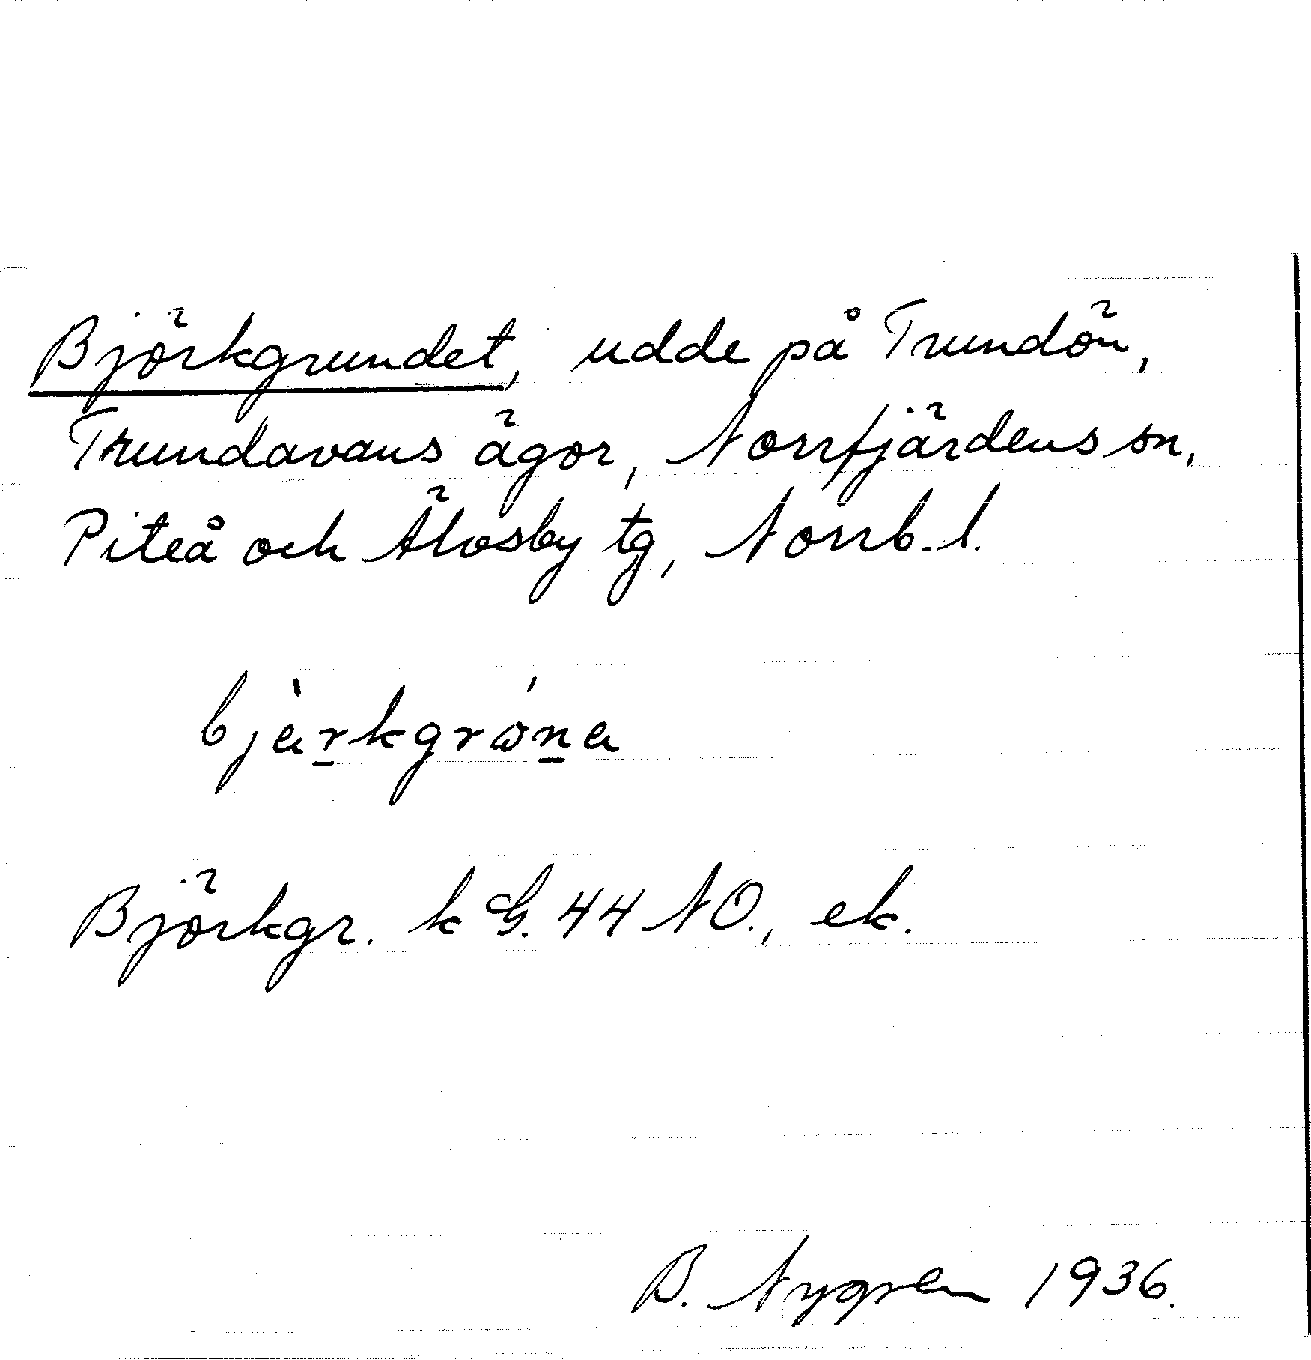 Björkgrundet, udde på Trundön,
Trundavans ägor, Norrfjärdens sn,
Piteå och Älvsby tg, Norrb. l.
bjàrkgróna
Björkgr. k G. 44 NO., ek.
B. Nygren 1936.